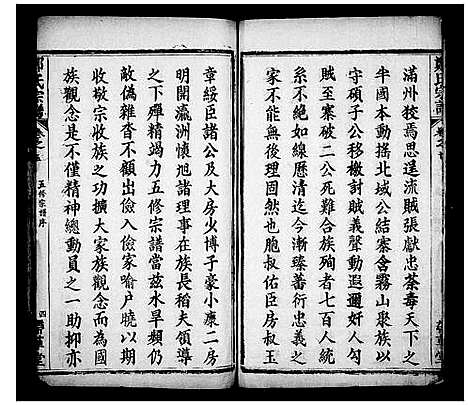 滿州狡焉思逞流賊張獻忠荼毒天下之
半國本動搖北城公結寨含霧山聚族以
守碩子公移檄討賊義聲動遐邇奸人勾
賊至寨破二公死難合族殉者七百人幾
系不絕如線歷清迄今漸臻蕃衍忠義之
後必無不興理固然也胞叔佑臣房叔玉
章綬臣諸公及大房火博于豪小康二房
明開瀛洲懷旭諸理事在族長稻夫領導
之下殫精竭力五修宗譜當茲水旱頻仍
敵偽雜沓不顧出儉入儉家喻户曉以期
收敬宗收族之功擴大家族觀念而為國
族觀念是不僅精神總動員之一助抑亦
鄭氏宗譜
五修宗譜序
四